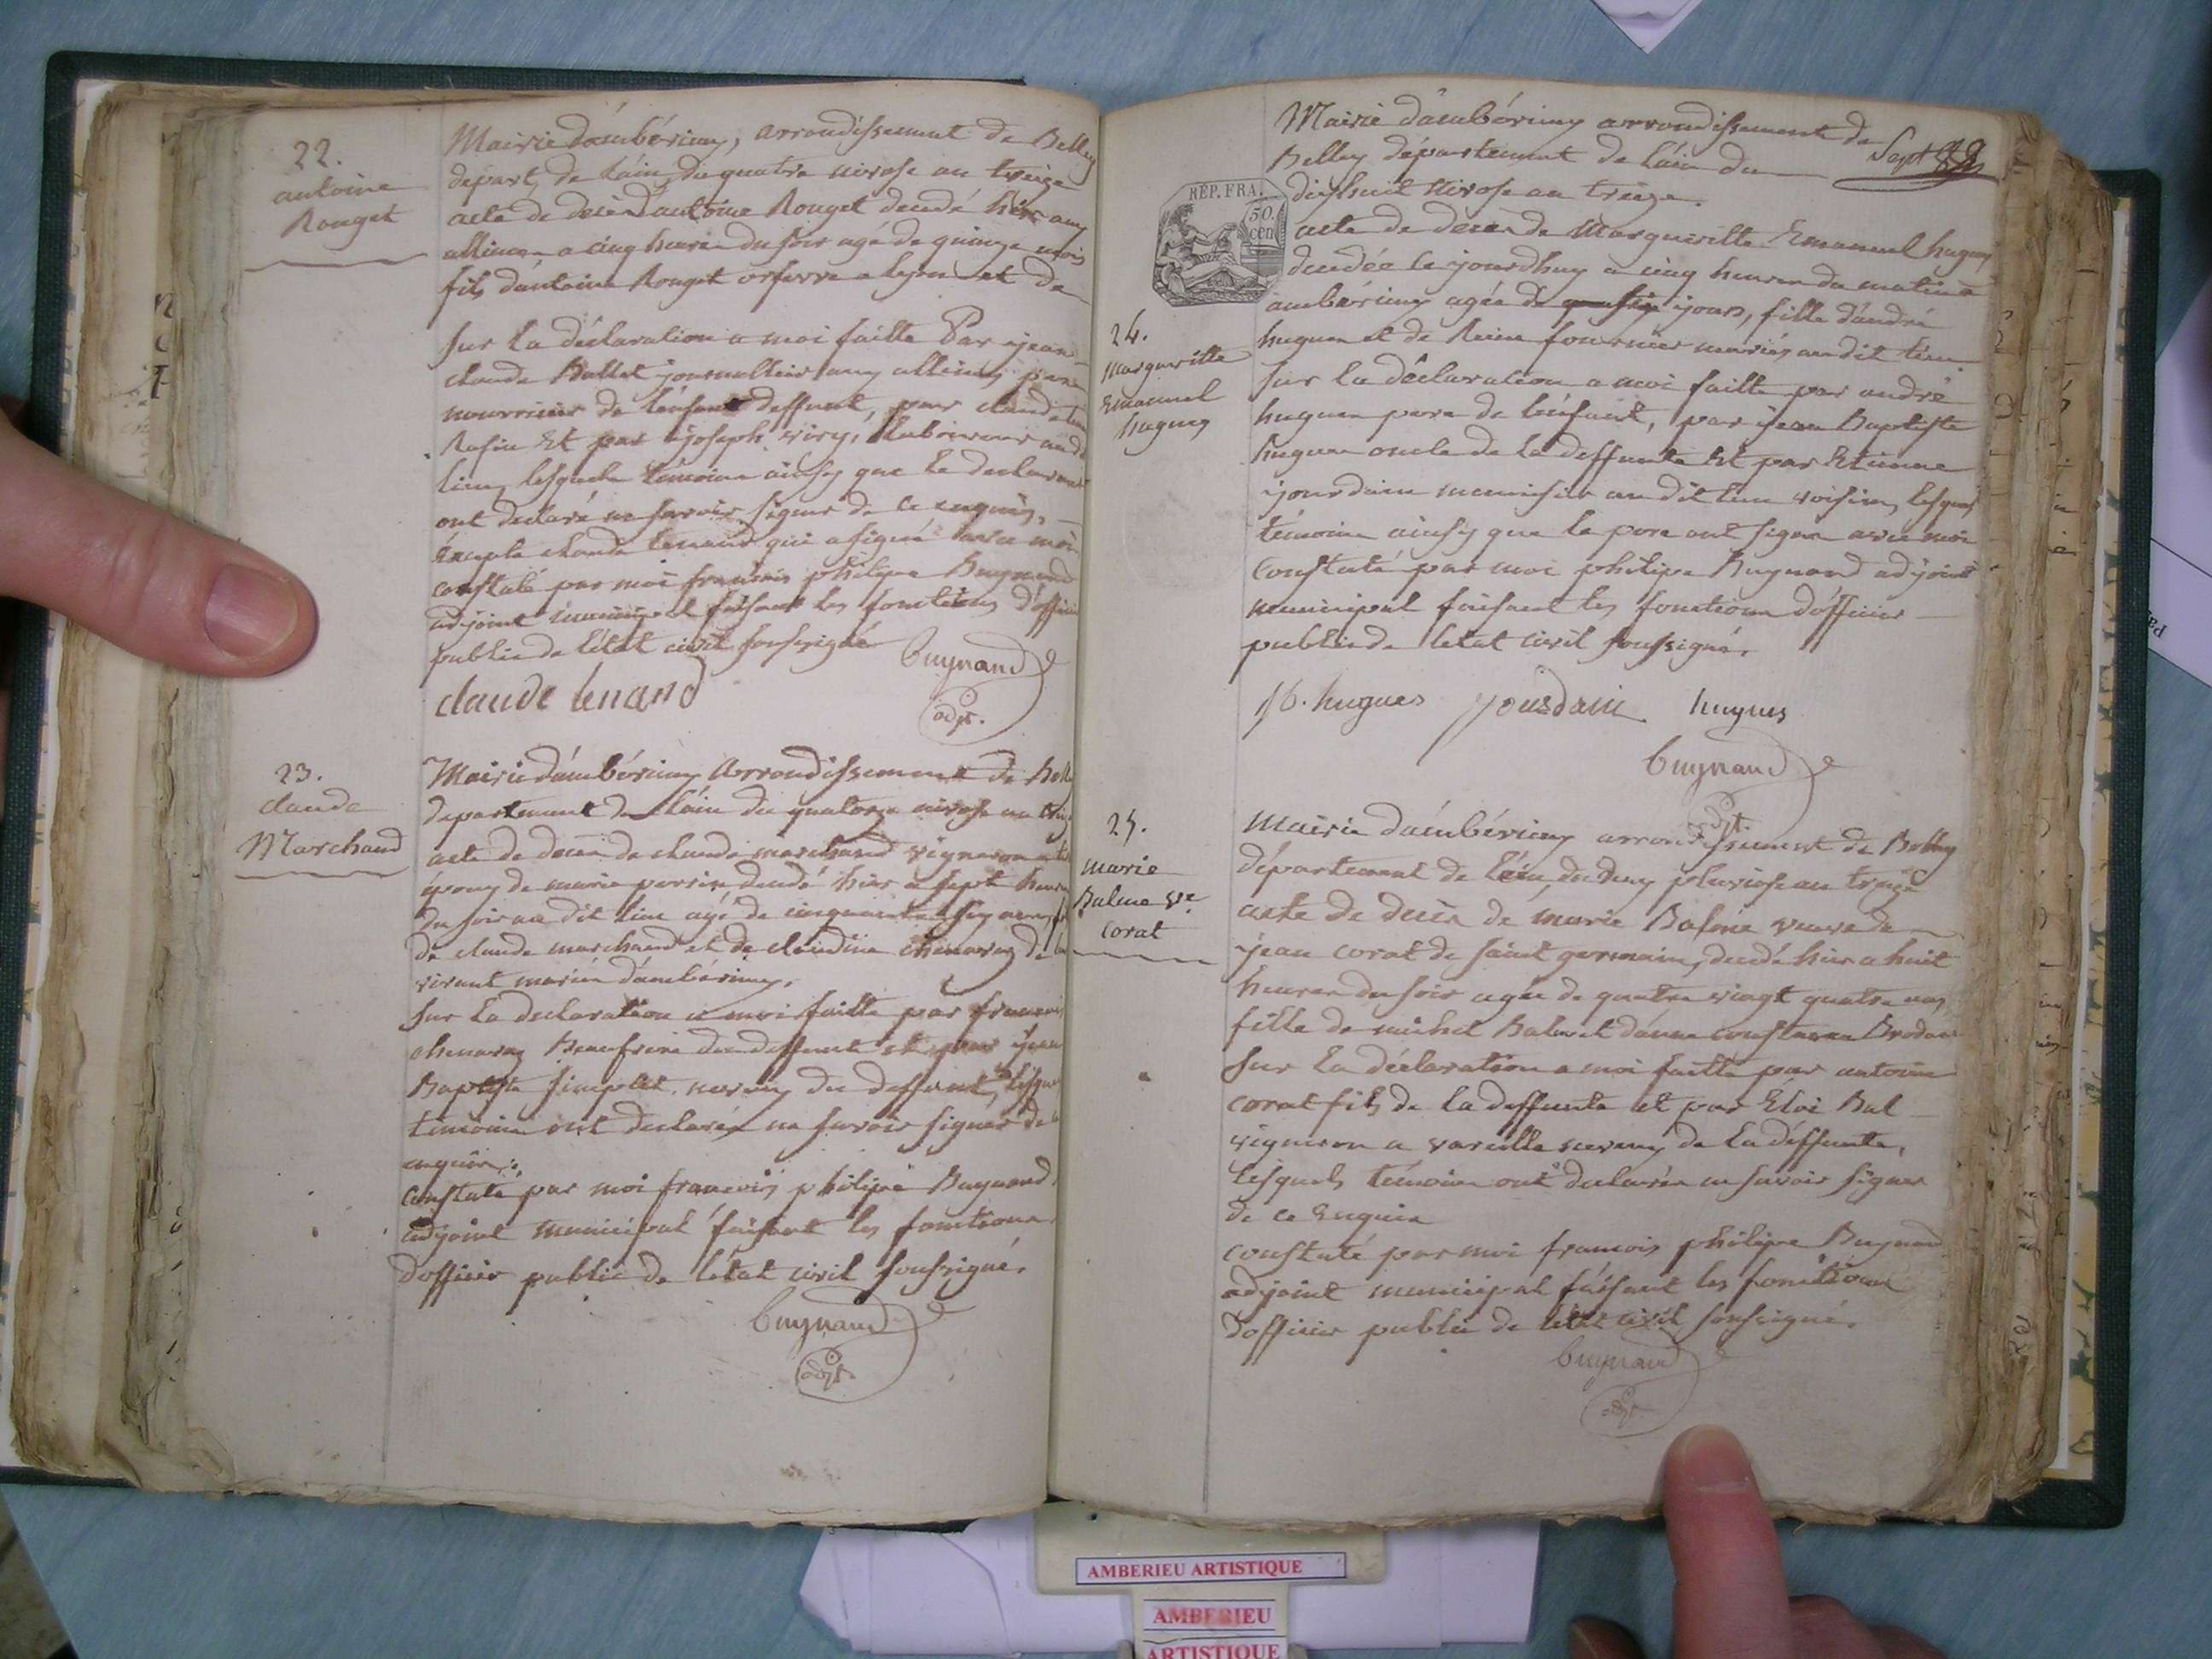 22.
antoine
Rouget
Mairie dámbérieux, arrondissement de Belley
départ, de láin, du quatre nivose an treize
acte de decés dántoine Rouget decedé hier aux
allimes a cinq heures du soir agé de quinze mois
fils dántoine Rouget orfevre a lyon et de
sur la déclaration a moi faitte Par jean
claude Ballet journallier aux allimes pere
nourricier de lénfant deffunt, par claude
et par joseph laboureur au d
lieu, lesquels témoins ainsy que le declarant
ont declaré ne savoir signer de ce enquis,
éxcepté claude lenand qui a signé avec moi
constaté par moi francois philipe Buynand
adjoint municipal faisant les fonctions d'officier
public de l'état civil soussigné
buynand
adjt.
claude lenand
23.
claude
Marchand
Mairie dámbérieux Arrondissement de Bell
departement de láin du quatorze nivose an treize
acte de decés de claude marchand vigneron
époux de marie perrin, decedé hier a sept heures
du soir au dit lieu agé de cinquante six ans, fils
de claude marchand et de claudine chenavaz de
vivant mariés dámbérieux.
Sur la declaration a moi faitte par francois
chenavaz Beaufrere du deffunt et par jean
Baptiste simplet neveux du deffunt, lesquels
témoins ont declarés ne savoir signer de
enquis.
Constaté par moi francois philipe Buynand
adjoint municipal faisant les fonctions
dofficier public de létat civil soussigné.
buynand
adjt.
Sept
Mairie dámbérieux arrondissement de
Belley département de láin du
dixhuit Nivose an treize.
RÉP. FRA.
50.
cen
acte de decés de Margueritte Emanuel hugues
decedée ce jourdhuy a cinq heures du matin a
ambérieux agée de jours, fille dándré
24.
Margueritte
Emanuel
hugues
hugues et de Reine fournier mariés au dit lieu
Sur la déclaration a moi faitte par andré
hugues pere de lénfant, par jean Baptiste
hugues oncle de la deffunte et par Etienne
jourdain menuisier au dit lieu voisin, lesquels
témoins ainsy que le pere ont signer avec moi
Constaté par moi philipe Buynand adjoint
municipal faisant les fonctions dófficier
public de letat civil soussigné.
J b. hugues jourdain hugues
buynand
adjt.
25.
marie
Balme ve.
corat
Mairie dámbérieux arrondissement de Belley
département de láin, du deux pluviose an treize
acte de decès de marie Balme veuve de
jean corat de saint germain, decedé hier a huit
heures du soir agée de quatre vingt quatre ans,
fille de michel Balme et dánne constance
Sur la déclaration a moi faitte par antoine
corat fils de la deffunte et par Eloi Bal
vigneron a vareille neveux de la déffunte,
lesquels témoins ont declarés ne savoir signer
de ce Enquis
constaté par moi francois philipe Buynand
adjoint municipal faisant les fonctions
dofficier public de létat civil soussigné.
buynand
adjt.
AMBERIEU ARTISTIQUE
AMBERIEU
ARTISTIQUE